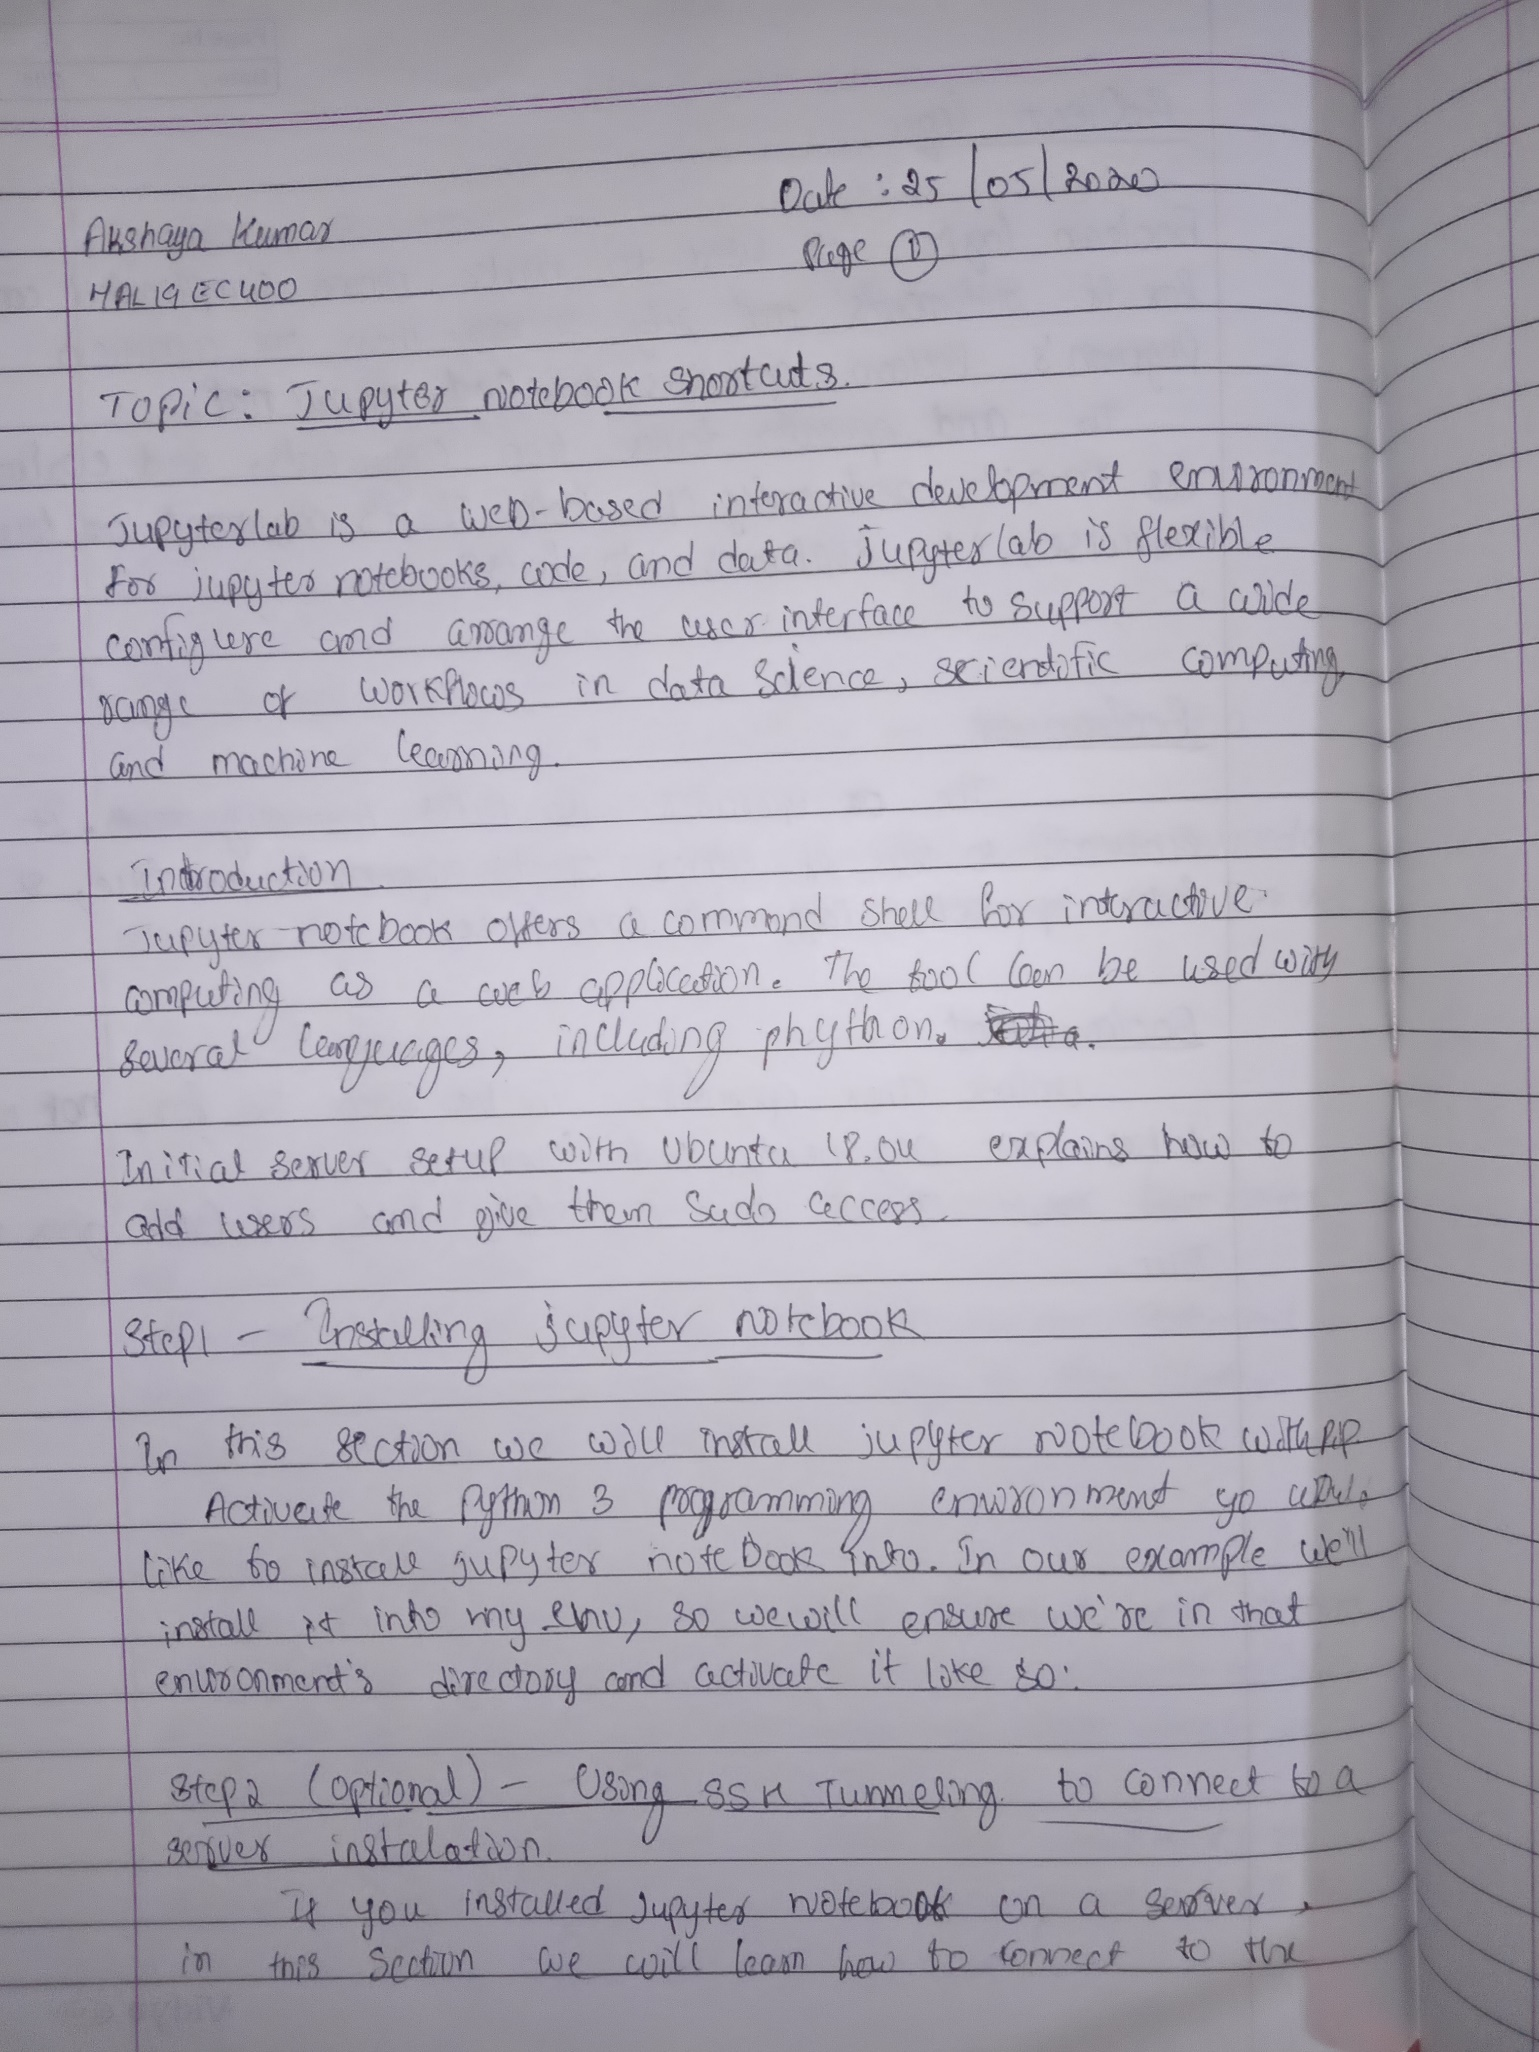 Date : 25/05/2020
Akshaya Kumar
Page 1
HAL19EC400
Topic: Jupyter notebook shortcuts.
Jupyterlab is a web-based interactive development environment
for jupyter notebooks, code, and data. jupyterlab is flexible
configure and arrange the user interface to support a wide
range of workflows in data science, scientific computing,
and machine learning.
Introduction
Jupyter notebook offers a command shell for interactive
computing as a web application. The tool can be used with
several languages, including phython.
Initial server setup with Ubuntu 18.04 explains how to
add users and give them sudo access.
Step1 - Installing jupyter notebook
In this section we will install jupyter notebook with PIP
Activate the Python 3 programming environment yo would
like to install jupyter notebook into. In our example we'll
install it into my env, so we will ensure we're in that
environment's directory and activate it like so:
Step2 (optional) - Using SSH Tunneling to connect to a
server instalation.
If you installed Jupyter notebook on a server,
in this section we will learn how to connect to the